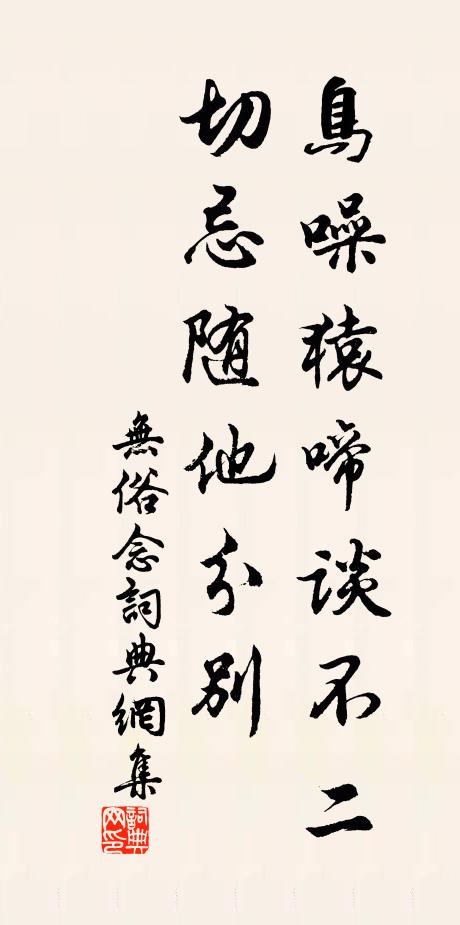 鳥噪猿啼談不二
切忌随他分別
無俗念詞典網集
詞典网印